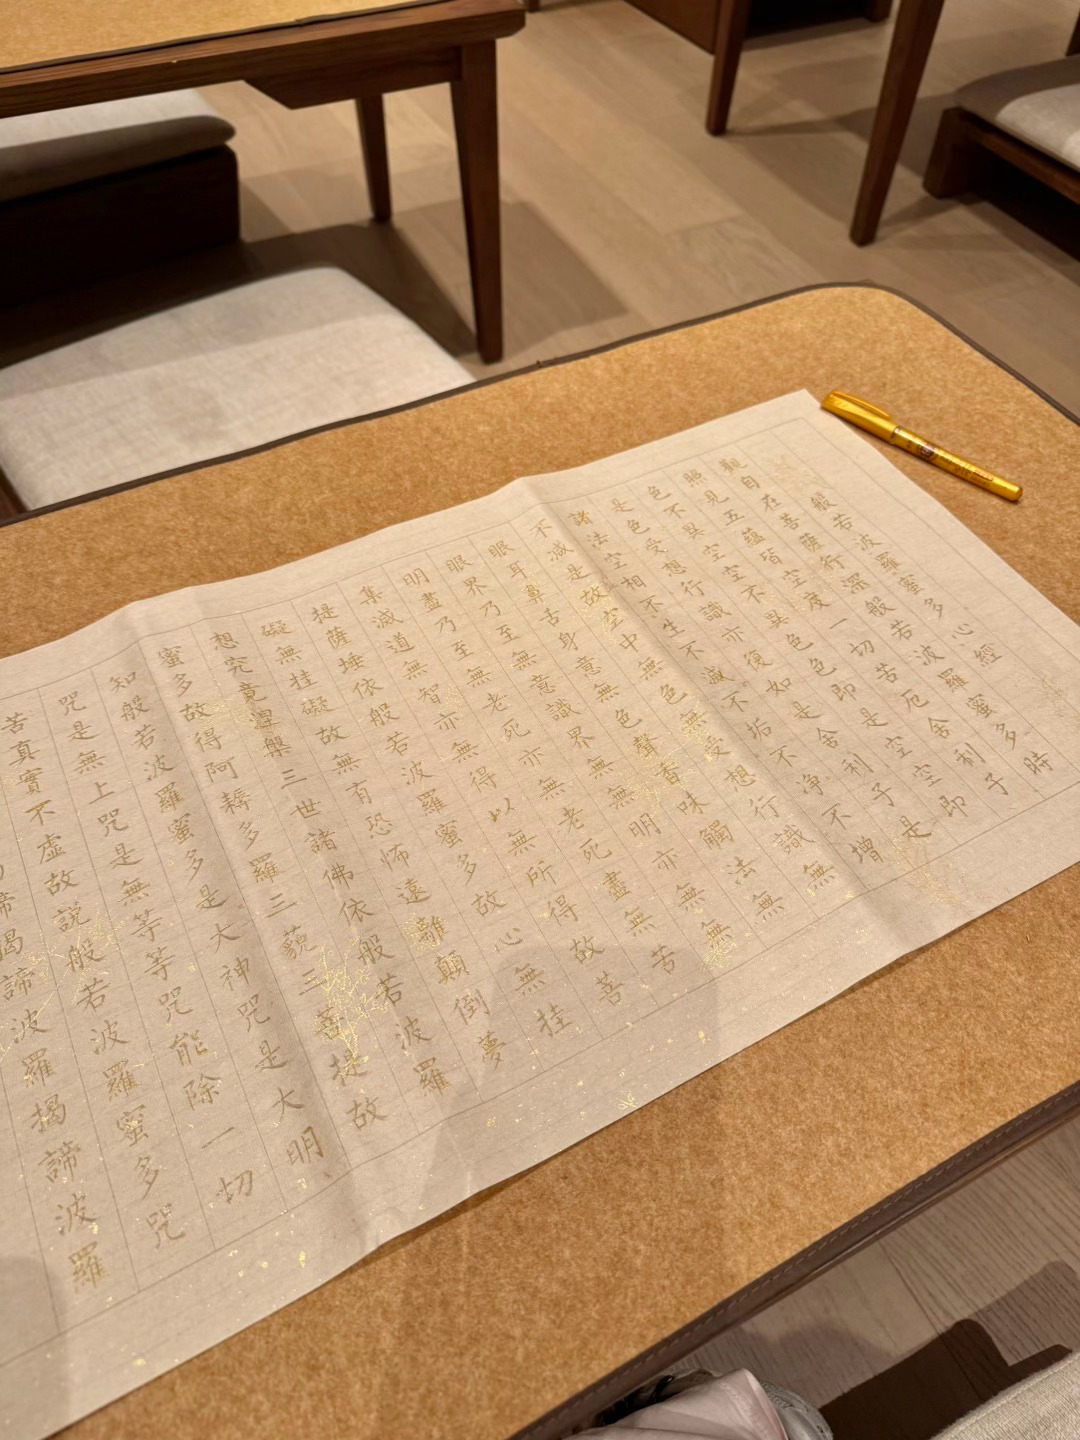 般若波羅蜜多心經
觀自在菩薩行深般若波羅蜜多時
照見五蘊皆空度一切苦厄舍利子
色不異空空不異色色即是空空即
是色受想行識亦復如是舍利子是
諸法空相不生不滅不垢不淨不增
不減是故空中無色無受想行識無
眼耳鼻舌身意無色聲香味觸法無
眼界乃至無意識界無無明亦無無
明盡乃至無老死亦無老死盡無苦
集滅道無智亦無得以無所得故菩
提薩埵依般若波羅蜜多故心無挂
礙無挂礙故無有恐怖遠離顛倒夢
想究竟涅槃三世諸佛依般若波羅
蜜多故得阿耨多羅三藐三菩提故
知般若波羅蜜多是大神咒是大明
咒是無上咒是無等等咒能除一切
苦真實不虛故說般若波羅蜜多咒
諦揭諦波羅揭諦波羅